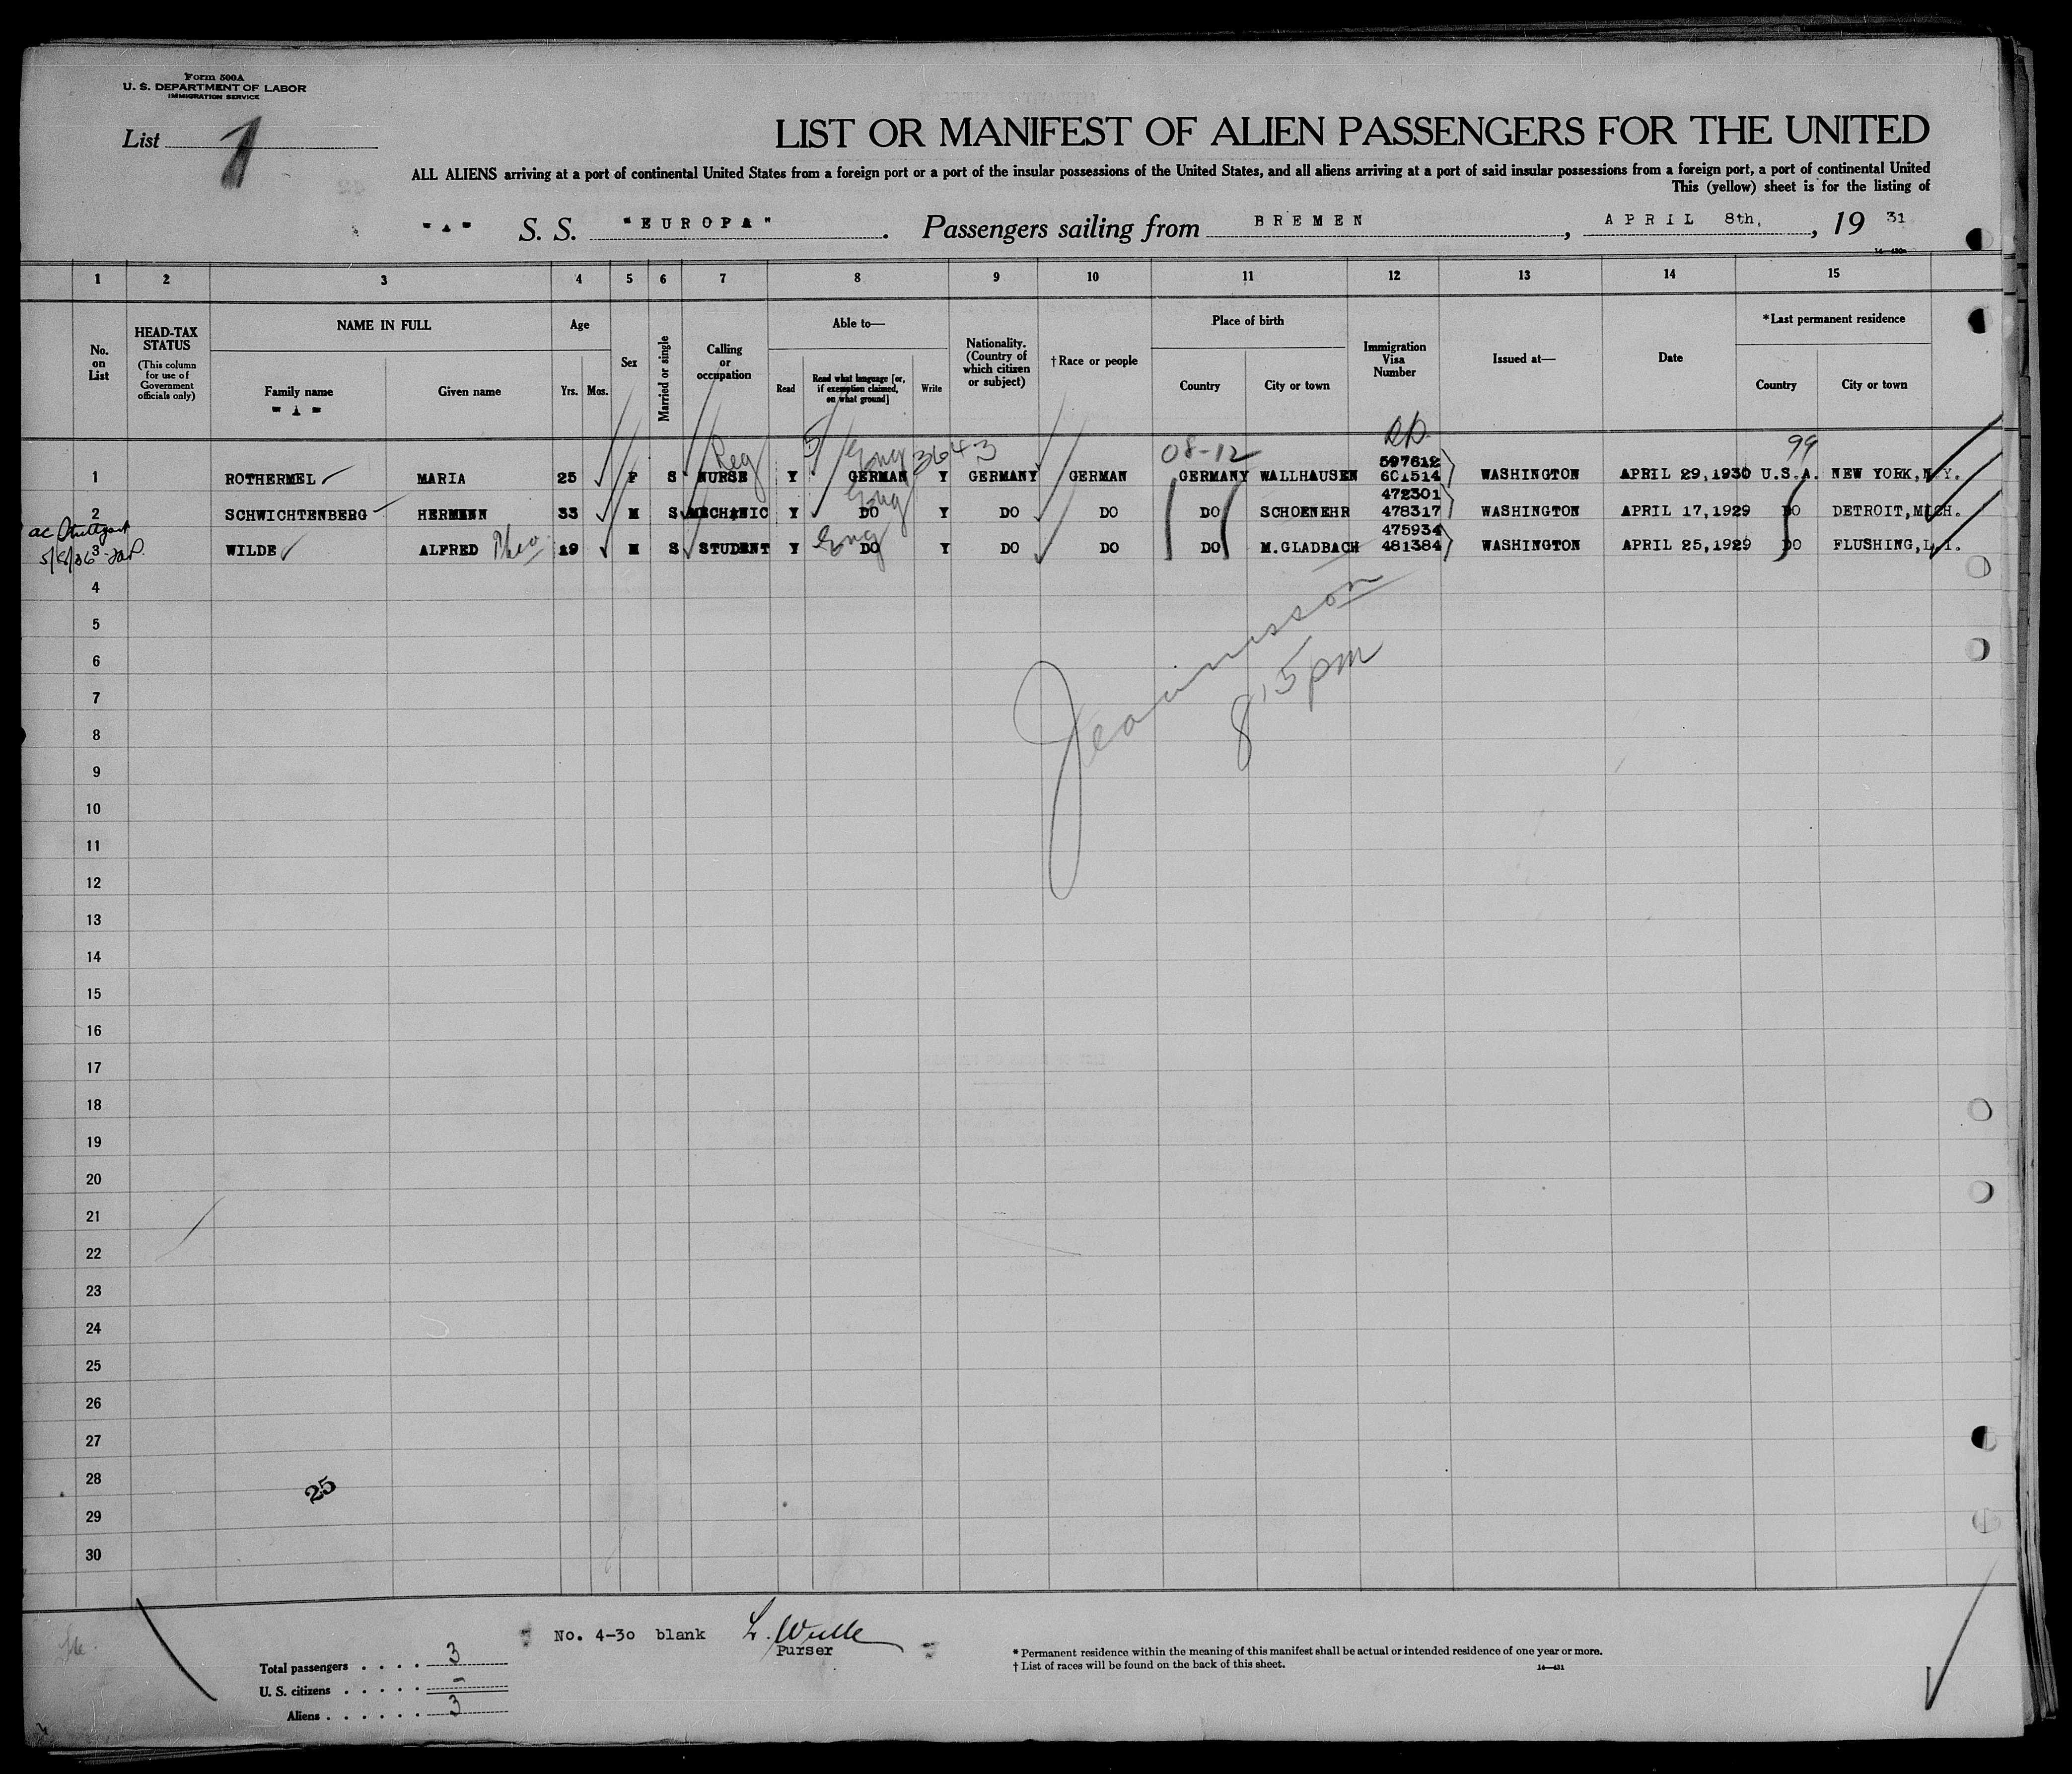 Form 500A
U. S. DEPARTMENT OF LABOR
IMMIGRATION SERVICE
List 1
LIST OR MANIFEST OF ALIEN PASSENGERS FOR THE UNITED
ALL ALIENS arriving at a port of continental United States from a foreign port or a port of the insular possessions of the United States, and all aliens arriving at a port of said insular possessions from a foreign port, a port of continental United
This (yellow) sheet is for the listing of
"A" S. S. "EUROPA". Passengers sailing from BREMEN, APRIL 8th, 1931
1 2 3 4 5 6 7 8 9 10 11 12 13 14 15
No. on List
HEAD-TAX STATUS
(This column for use of Government officials only)
NAME IN FULL
Family name
Given name
Age
Yrs. Mos.
Sex
Married or single
Calling or occupation
Able to—
Read
Read what language [or, if exemption claimed, on what ground]
Write
Nationality. (Country of which citizen or subject)
†Race or people
Place of birth
Country
City or town
Immigration Visa Number
Issued at—
Date
*Last permanent residence
Country
City or town
Reg 5 Eng 3643 08-12 99
1 ROTHERMEL MARIA 25 F S NURSE Y GERMAN Y GERMANY GERMAN GERMANY WALLHAUSEN 597612 601514 WASHINGTON APRIL 29,1930 U.S.A. NEW YORK,N.Y.
2 SCHWICHTENBERG HERMANN 33 M S MECHANIC Y DO Eng Y DO DO DO SCHOENEHR 472301 478317 WASHINGTON APRIL 17,1929 DO DETROIT,MICH.
3 WILDE ALFRED Theo 19 M S STUDENT Y DO Eng Y DO DO DO M.GLADBACH 475934 481384 WASHINGTON APRIL 25,1929 DO FLUSHING,L.I.
4
5
6
7
8
9
10
11
12
13
14
15
16
17
18
19
20
21
22
23
24
25
26
27
28
29
30
25
No. 4-30 blank
Purser
Total passengers . . . . 3
U. S. citizens . . . . . -
Aliens . . . . . . 3
* Permanent residence within the meaning of this manifest shall be actual or intended residence of one year or more.
† List of races will be found on the back of this sheet.
14—431